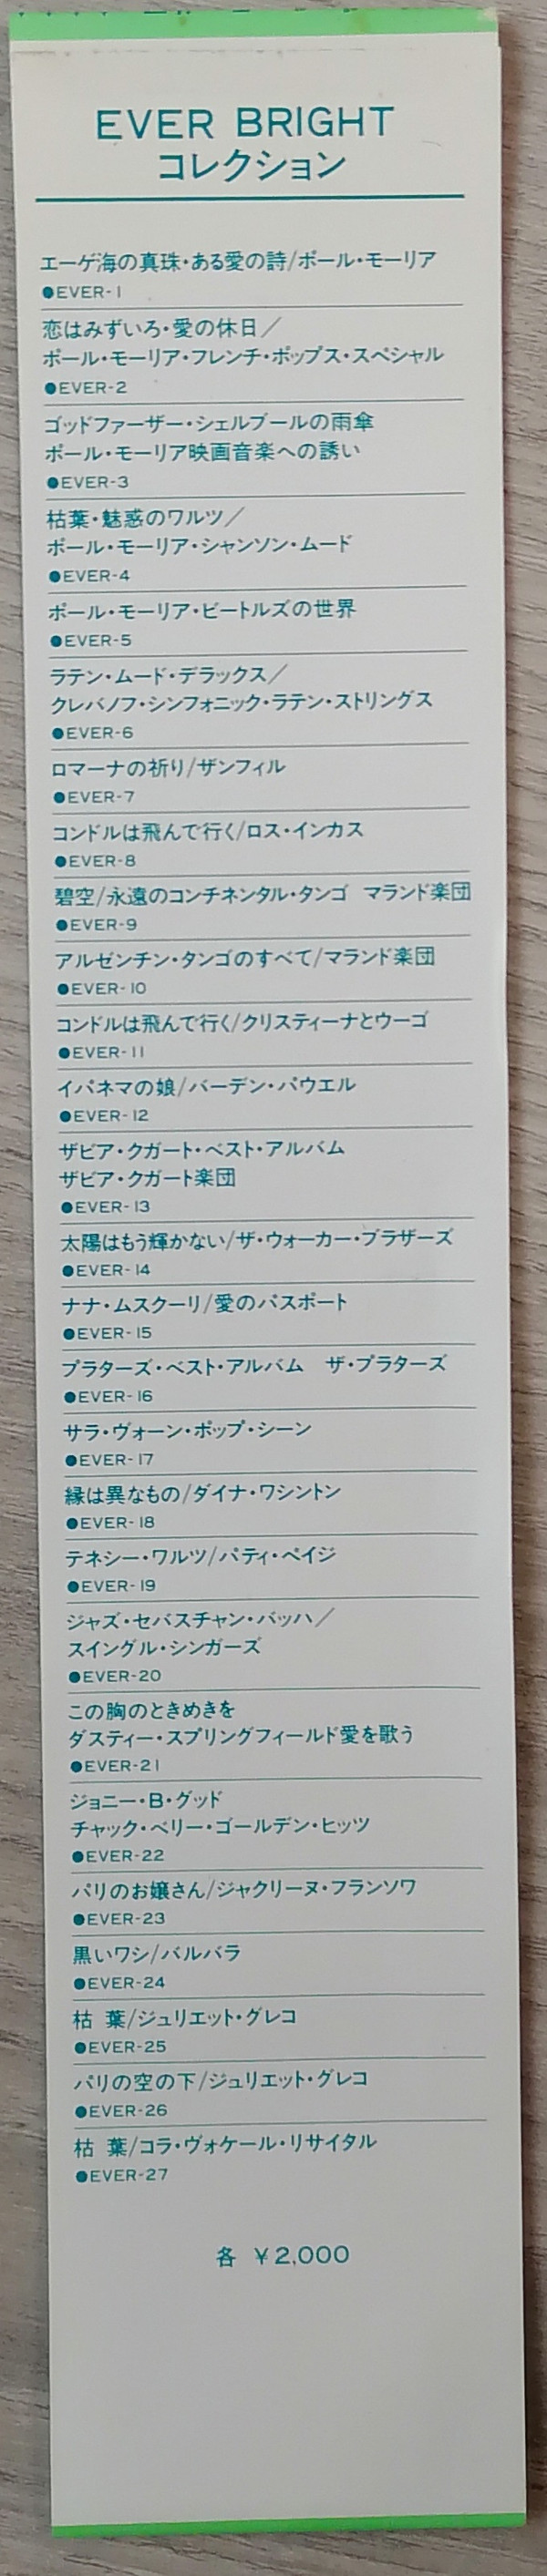 EVER BRIGHT
コレクション
エーゲ海の真珠・ある愛の詩/ポール・モーリア
●EVER-1
恋はみずいろ・愛の休日／
ポール・モーリア・フレンチ・ポップス・スペシャル
●EVER-2
ゴッドファーザー・シェルブールの雨傘
ポール・モーリア映画音楽への誘い
●EVER-3
枯葉・魅惑のワルツ／
ポール・モーリア・シャンソン・ムード
●EVER-4
ポール・モーリア・ビートルズの世界
●EVER-5
ラテン・ムード・デラックス／
クレバノフ・シンフォニック・ラテン・ストリングス
●EVER-6
ロマーナの祈り/ザンフィル
●EVER-7
コンドルは飛んで行く/ロス・インカス
●EVER-8
碧空/永遠のコンチネンタル・タンゴ　マランド楽団
●EVER-9
アルゼンチン・タンゴのすべて/マランド楽団
●EVER-10
コンドルは飛んで行く/クリスティーナとウーゴ
●EVER-11
イパネマの娘/バーデン・パウエル
●EVER-12
ザビア・クガート・ベスト・アルバム
ザビア・クガート楽団
●EVER-13
太陽はもう輝かない/ザ・ウォーカー・ブラザーズ
●EVER-14
ナナ・ムスクーリ/愛のパスポート
●EVER-15
プラターズ・ベスト・アルバム　ザ・プラターズ
●EVER-16
サラ・ヴォーン・ポップ・シーン
●EVER-17
縁は異なもの/ダイナ・ワシントン
●EVER-18
テネシー・ワルツ/パティ・ペイジ
●EVER-19
ジャズ・セバスチャン・バッハ／
スイングル・シンガーズ
●EVER-20
この胸のときめきを
ダスティー・スプリングフィールド愛を歌う
●EVER-21
ジョニー・B・グッド
チャック・ベリー・ゴールデン・ヒッツ
●EVER-22
パリのお嬢さん/ジャクリーヌ・フランソワ
●EVER-23
黒いワシ/バルバラ
●EVER-24
枯 葉/ジュリエット・グレコ
●EVER-25
パリの空の下/ジュリエット・グレコ
●EVER-26
枯 葉/コラ・ヴォケール・リサイタル
●EVER-27
各 ￥2,000